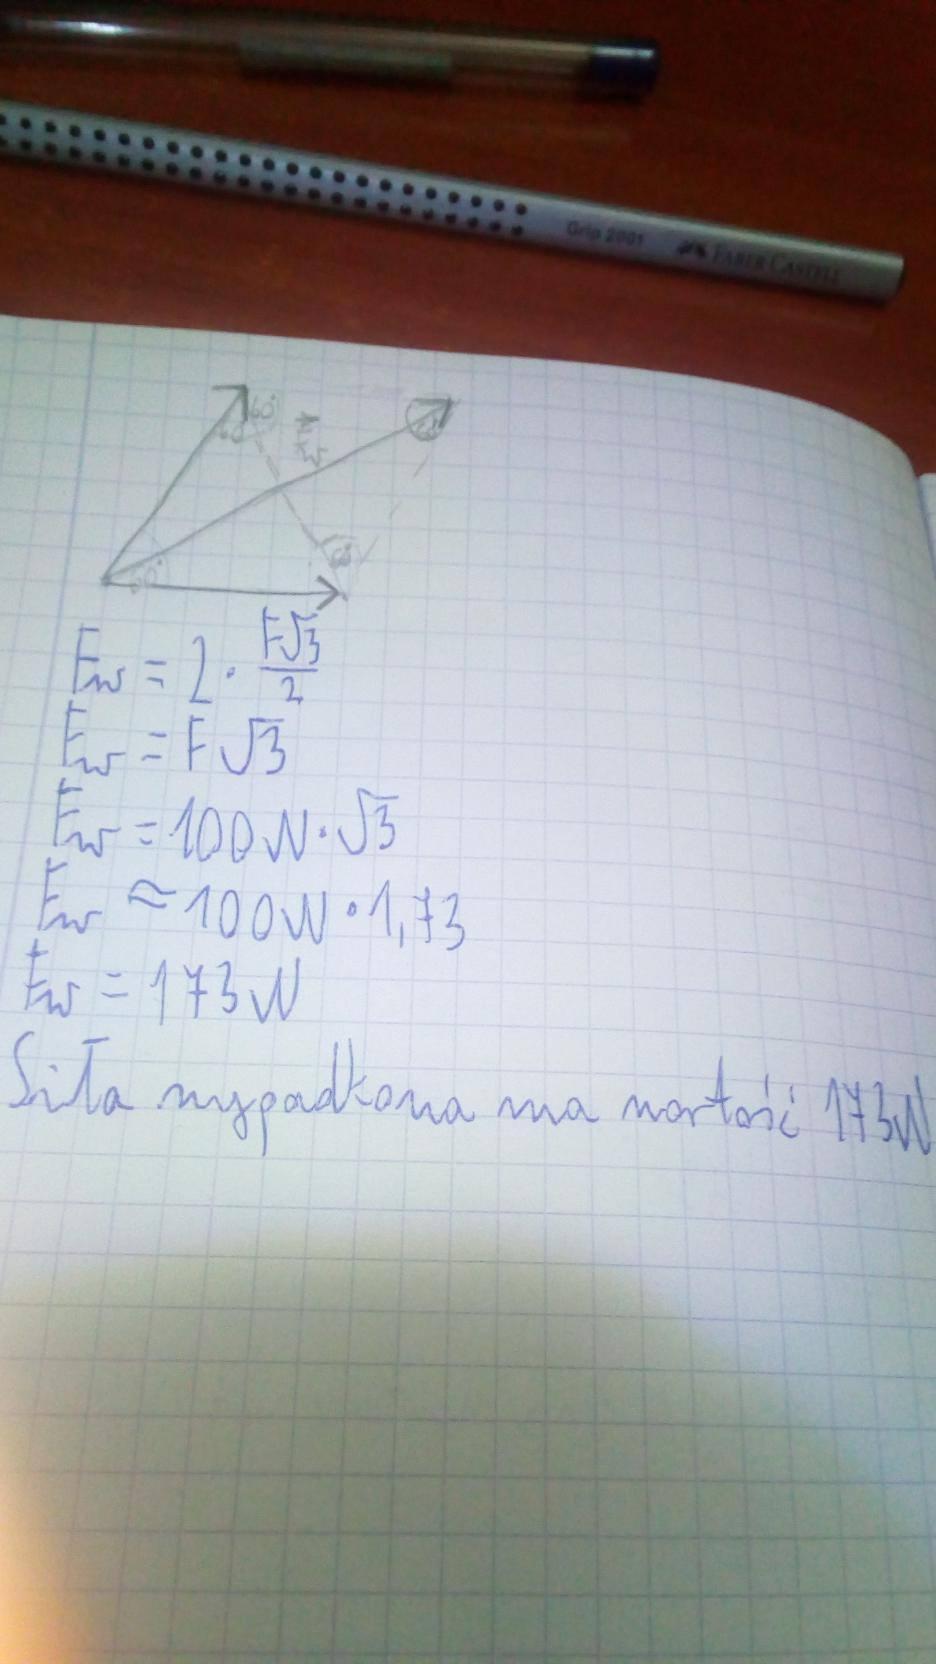 Grip 2001 FABER CASTELL
60°
60°
Fw
60°
60°
Fw = 2 · F√3/2
Fw = F√3
Fw = 100N · √3
Fw ≈ 100N · 1,73
Fw = 173N
Siła wypadkowa ma wartość 173N